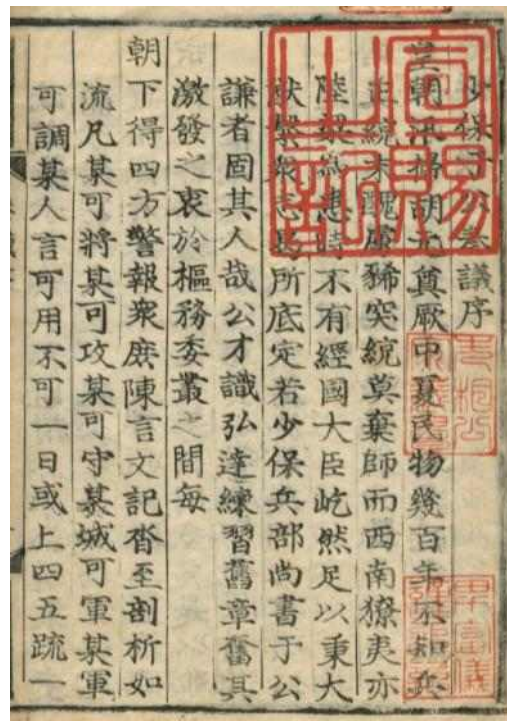 少保于公奏議序
皇朝汛掃胡元奠厥中夏民物幾百年不知兵
正統末醜虜豨突統莫棄師而西南獠夷亦
陸梁為患時不有經國大臣屹然足以秉大
猷繫衆志烏所底定若少保兵部尚書于公
謙者固其人哉公才識弘達練習舊章奮其
激發之衷於樞務委叢之間每
朝下得四方警報衆庶陳言文記沓至剖析如
流凡某可將某可攻某可守某城可軍某軍
可調某人言可用不可一日或上四五疏一
宣賜之記